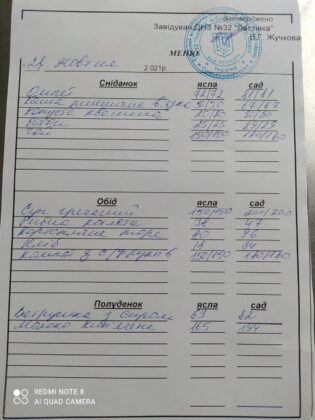 Затверджено
Завідувач ДНЗ №32 "Ластівка"
В.Г. Жучкова
МЕНЮ
28 жовтня 2.021р
Сніданок ясла сад
Омлет
Каша пшенична
Капуста квашена 20/20 30/30
25/25
Чай 150/150 180/180
Обід ясла сад
Суп гречаний 150/150 200/200
Рибна котлета 38 47
Картопляне пюре 80 96
Хліб 18 34
Компот з с/фруктів 150/150 180/180
Полуденок ясла сад
Ватрушка з сиром 63 82
Молоко кип'ячене 165 194
REDMI NOTE 8
AI QUAD CAMERA